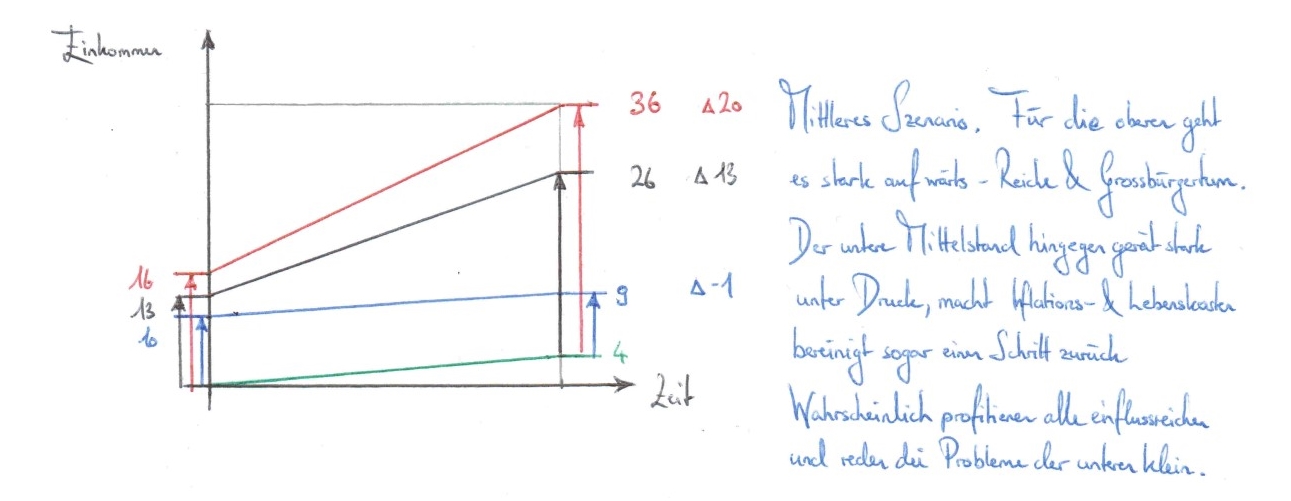 Einkommen
36 Δ20
26 Δ13
16
13
10
9 Δ-1
4
Zeit
Mittleres Szenario. Für die oberen geht
es stark aufwärts - Reiche & Grossbürgertum.
Der untere Mittelstand hingegen gerät stark
unter Druck, macht Inflations- & Lebenskosten
bereinigt sogar einen Schritt zurück
Wahrscheinlich profitieren alle einflussreichen
und reden die Probleme der unteren klein.